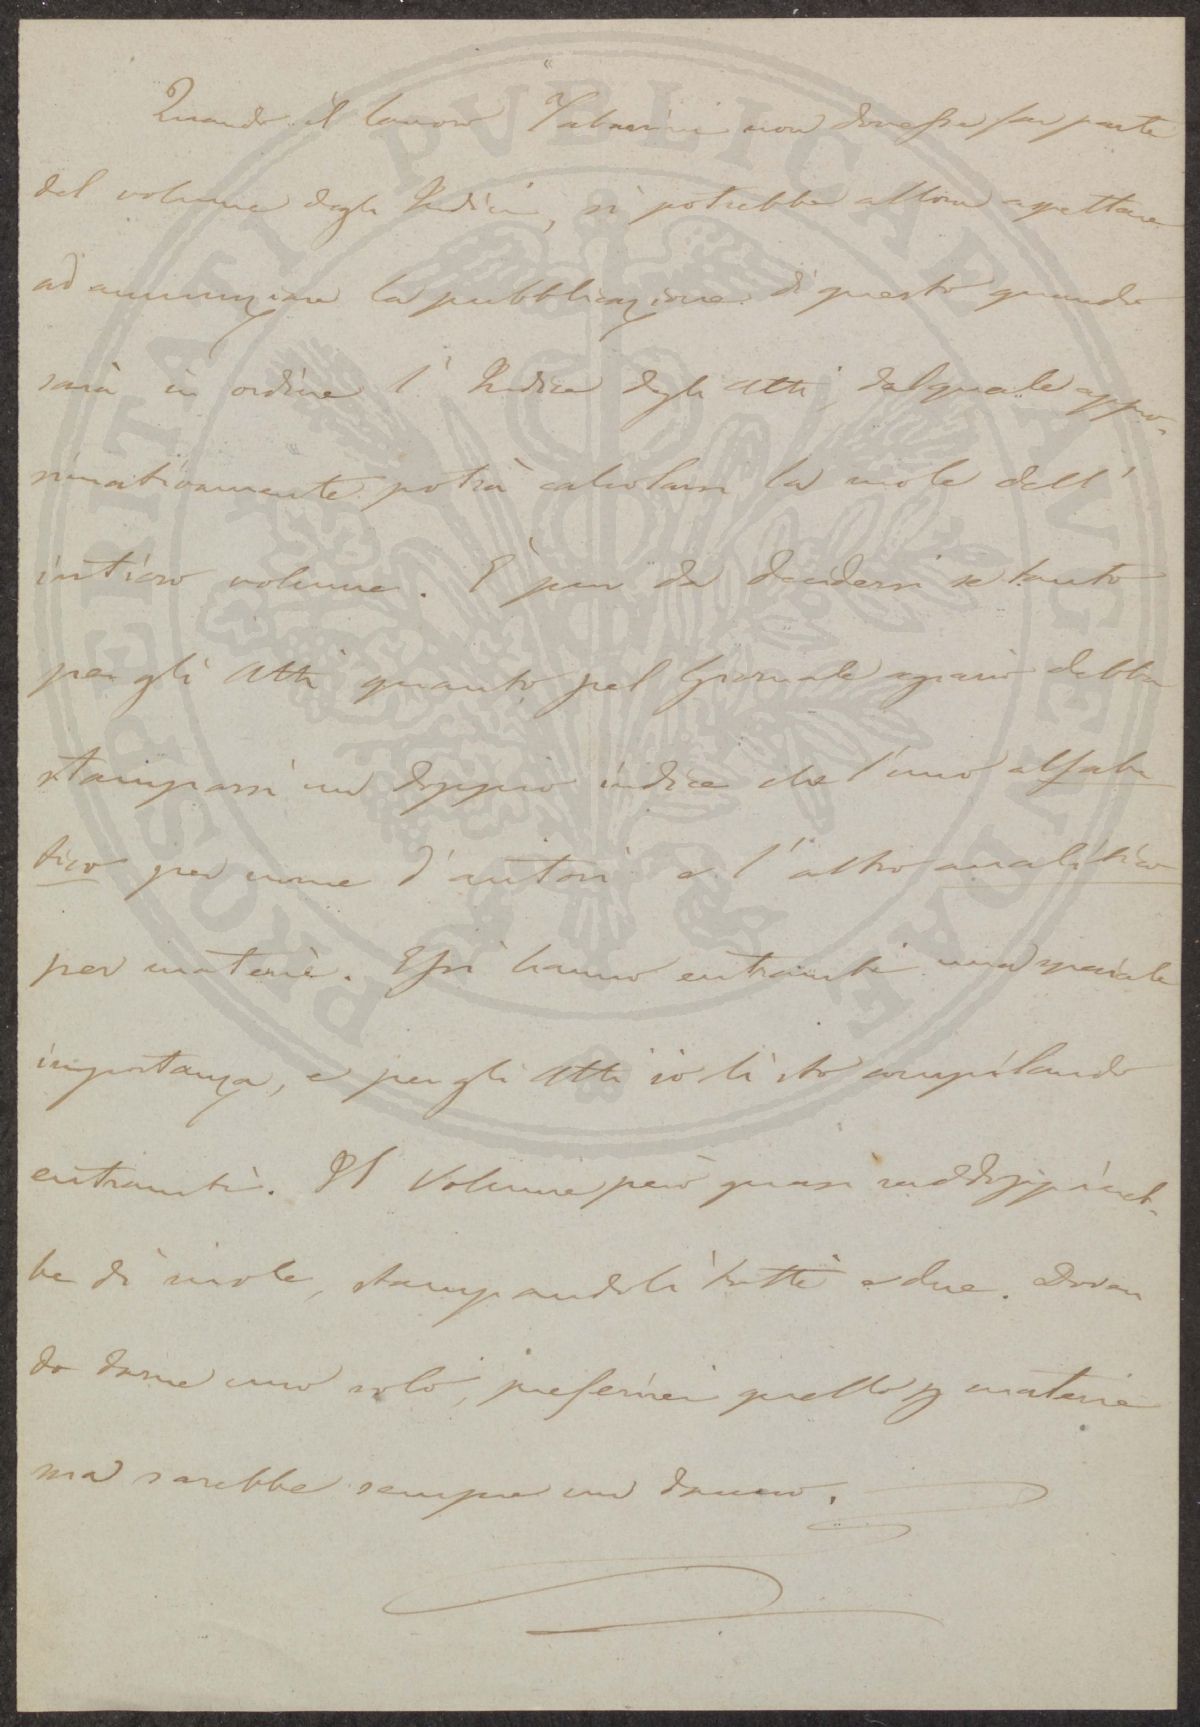 Quando il lavoro Tabarrini non dovesse far parte
del volume degli Indici, si potrebbe allora aspettare
ad annunziare la pubblicazione di questo quando
sarà in ordine l'Indice degli Atti, dal quale appros-
simativamente potrà calcolarsi la mole dell'
intiero volume. È pur da decidersi se tanto
per gli Atti quanto pel Giornale agrario debba
stamparsi un doppio indice che l'uno alfabe
tico per nome d'autori e l'altro analitico
per materie. Essi hanno entrambi una speciale
importanza, e per gli Atti io li sto compilando
entrambi. Il Volume però quasi raddoppiereb-
be di mole, stampandoli tutti e due. Doven
do darne uno solo, preferirei quello p materie
ma sarebbe sempre un danno.
PROSPERITATI PVBLICAE AVGENDAE